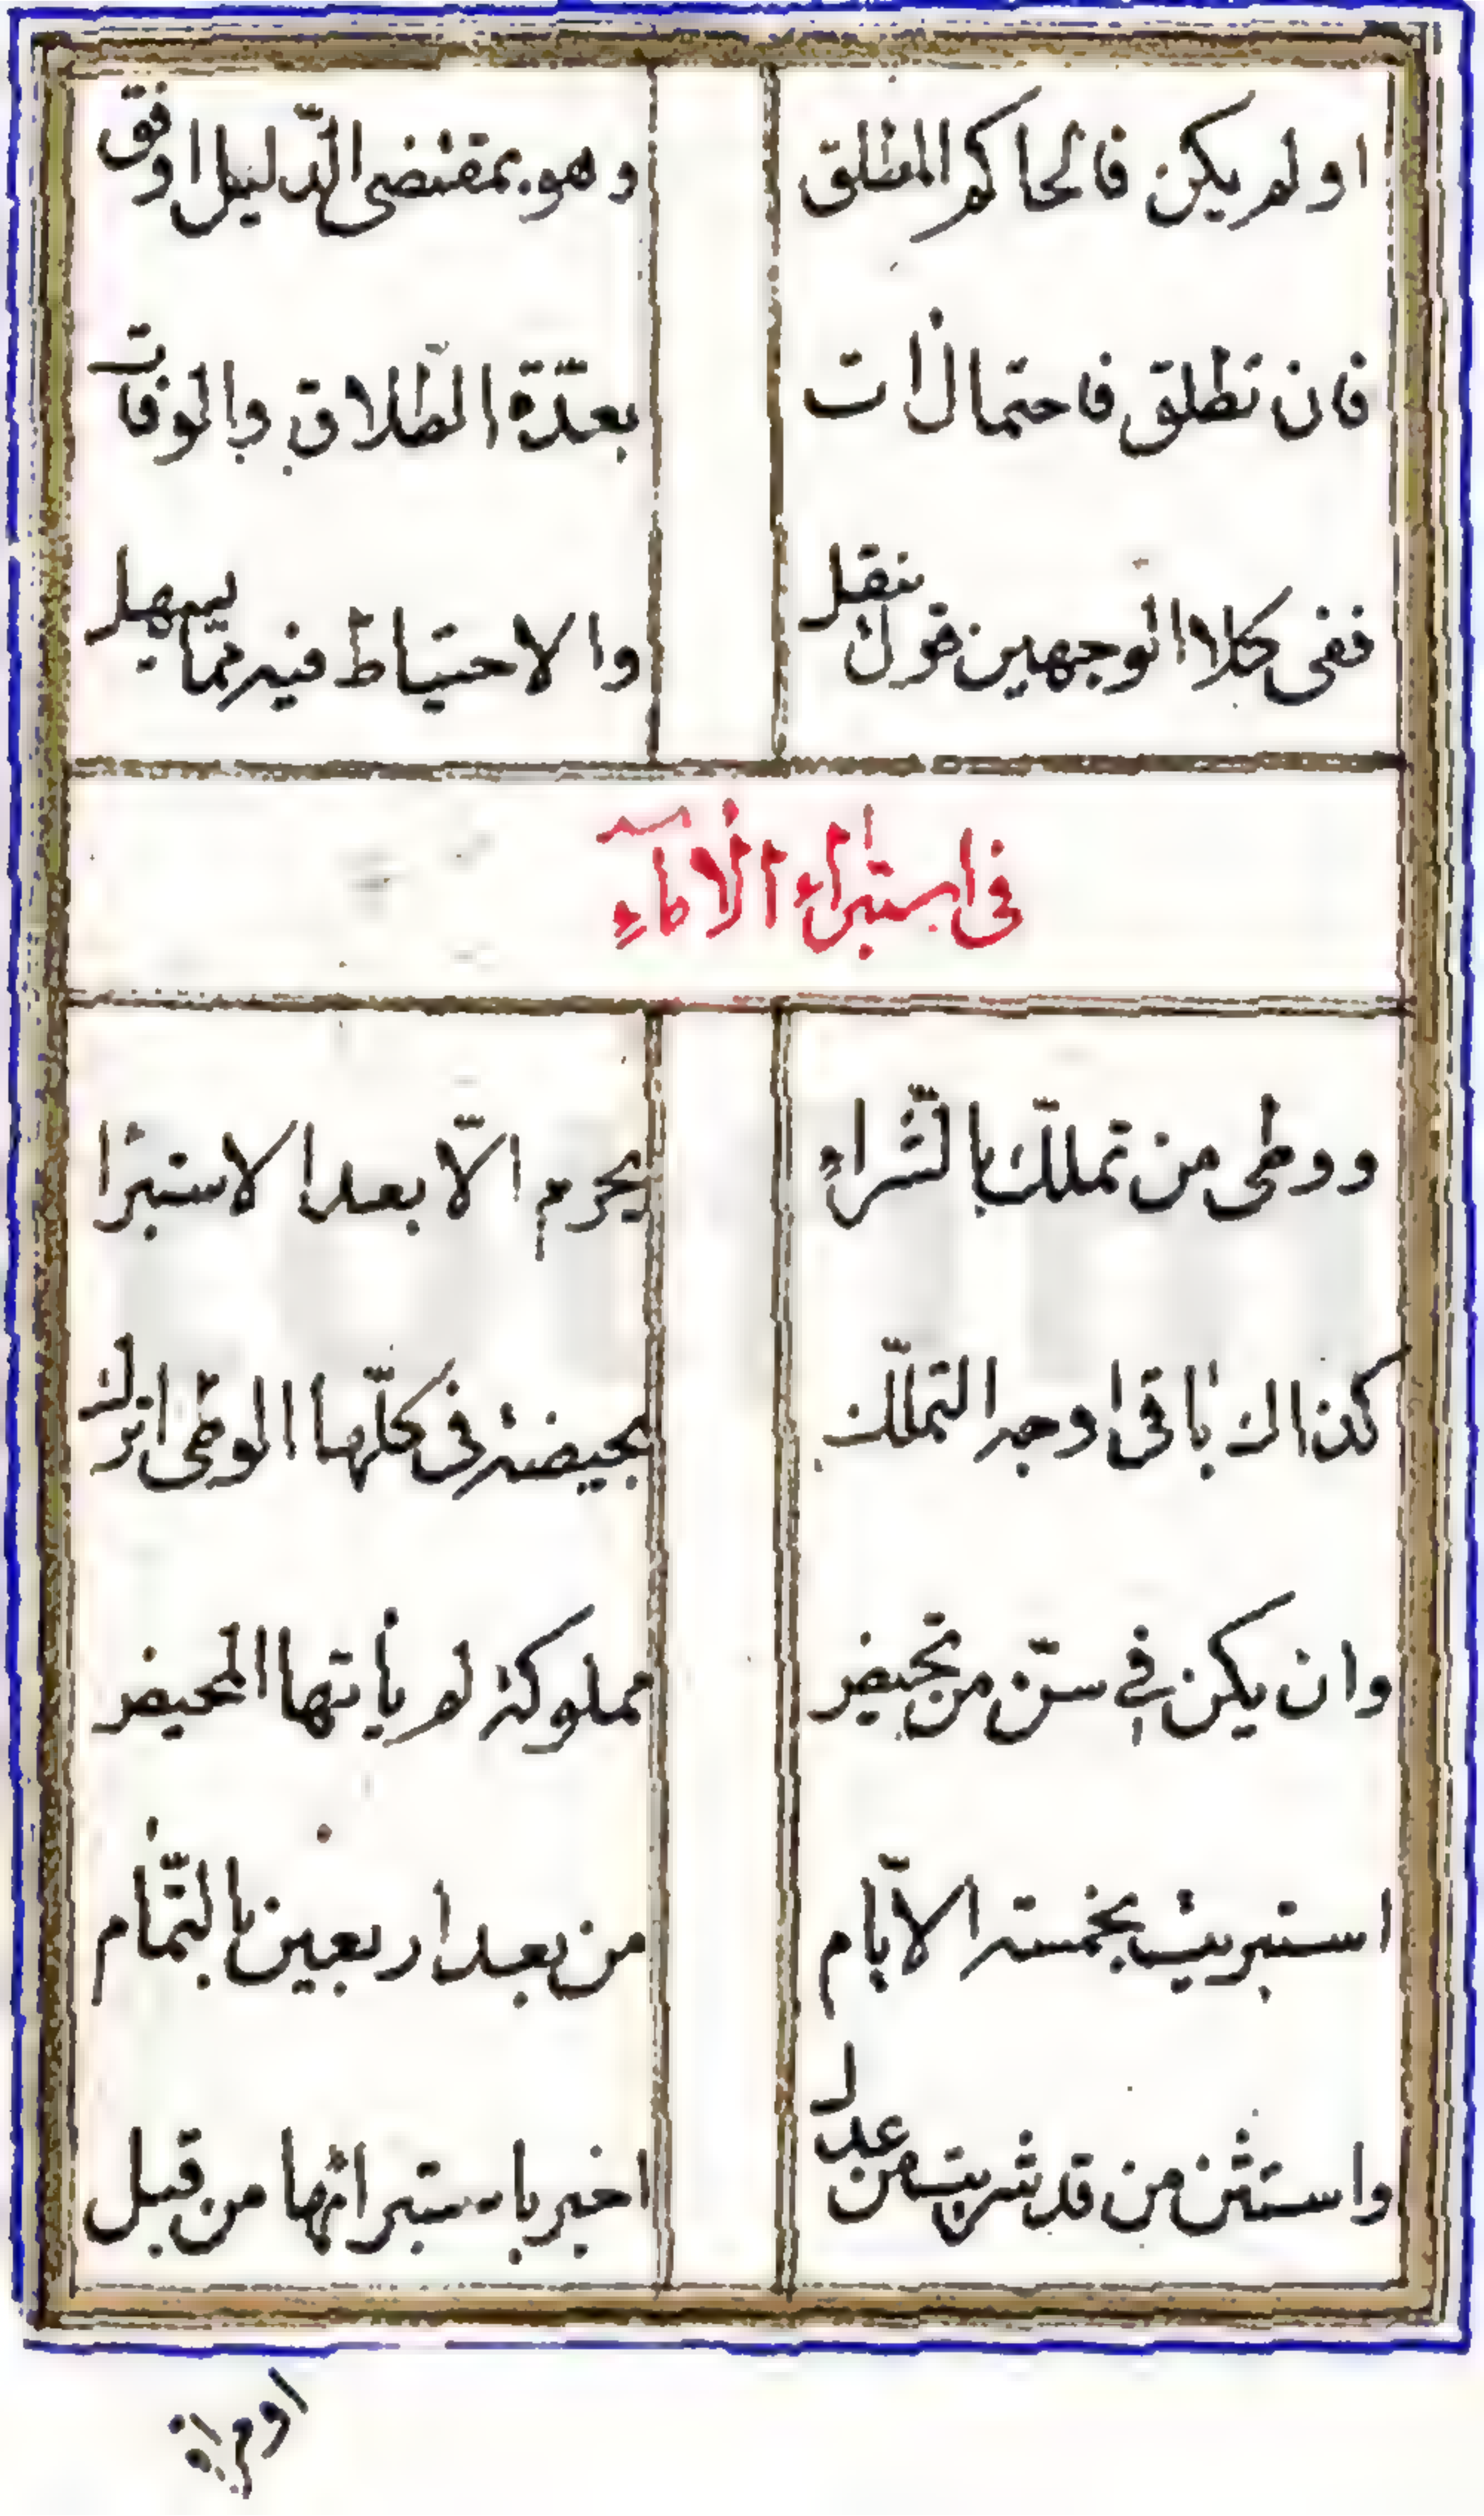 او لم يكن فالحاكم المطلق وهو بمقتضى الدّليل اوفق
فان تطلق فاحتمالات بعدّة الطّلاق والوفات
ففى كلا الوجهين قول ينقل والاحتياط فيه ممّا يسهل
فى استبراء الاماءِ
ووطى من تملّك بالشّراءِ يحرم الّا بعد الاستبرا
كذاك باقى اوجه التملّك بحيضة فى كلّها الوطى اترك
وان يكن في سنّ من تحيض مملوكة لم يأتها المحيض
استبريت بخمسة الايّام من بعد اربعين بالتّمام
واستثن من قد شريت من عدل اخبر باستبرائها من قبل
او مراة